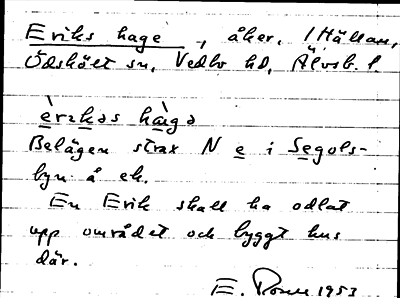 Eriks hage, åker, 1 Hällan,
Ödskölt sn, Vedbo hd, Älvsb. l.
èrɩkəs hàgə
Belägen strax N e i Segols-
byn å ek.
En Erik skall ha odlat
upp området och byggt hus
där.
E. 1953